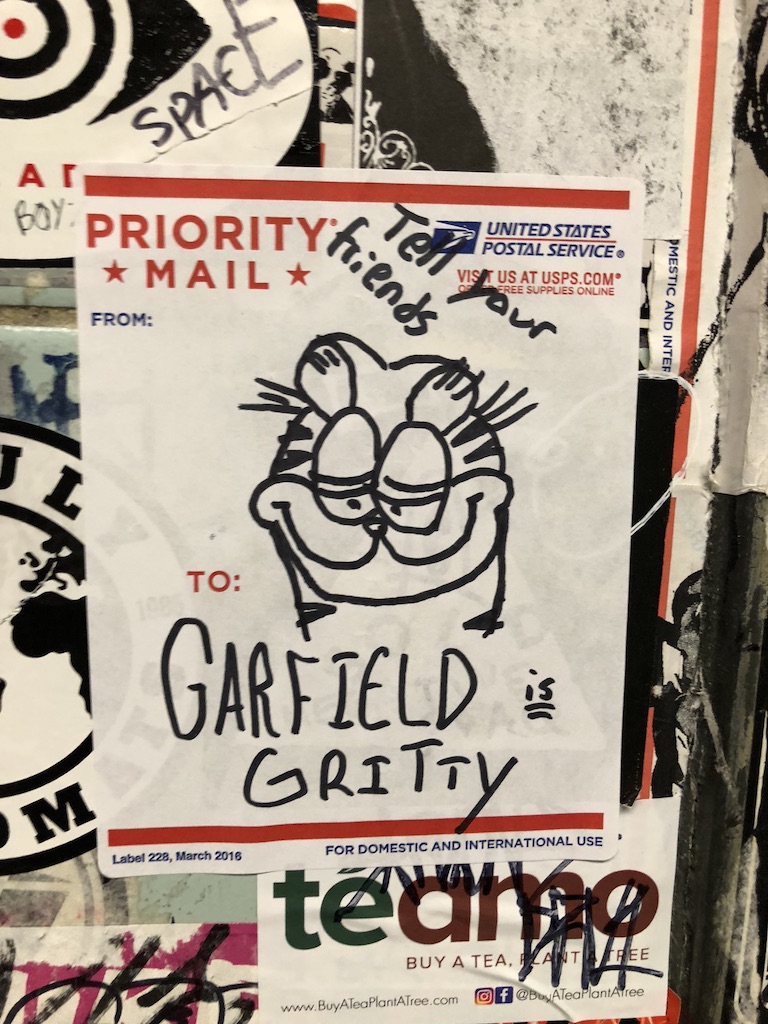 SPACE
BOY
PRIORITY
MAIL
UNITED STATES
POSTAL SERVICE®
VISIT US AT USPS.COM®
FREE SUPPLIES ONLINE
Tell your
friends
FROM:
MESTIC AND INTER
TO:
GARFIELD is
GRITTY
Label 228, March 2016
FOR DOMESTIC AND INTERNATIONAL USE
téamo
BUY A TEA, PLANT A TREE
www.BuyATeaPlantATree.com
@BuyATeaPlantATree